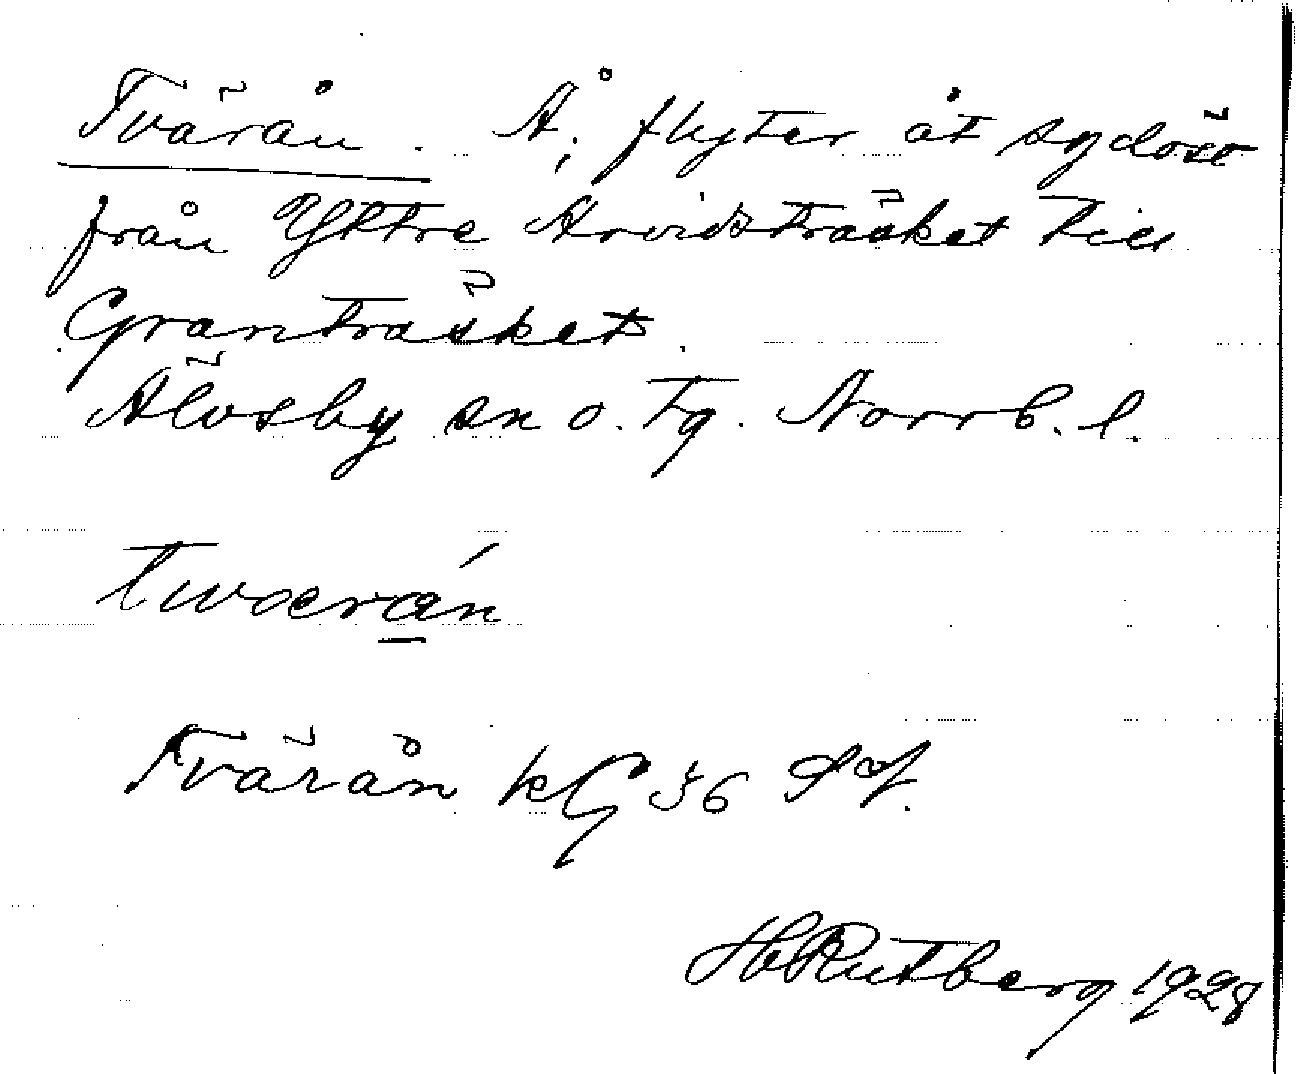 Tvärån. Å; flyter åt sydöst
från Yttre Arvidsträsket till
Granträsket.
Älvsby sn o. tg. Norrb. l.
twærǽn
Tvärån kG 56 Sf.
HRutberg 1928